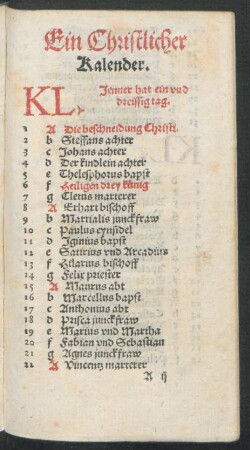 Ein Christlicher
Kalender.
KL
Jenner hat ein vnd
dreissig tag.
1 A Die beschneidung Christi
2 b Steffans achter
3 c Johans achter
4 d Der kindlein achter
5 e Thelesphorus bapst
6 f Heiligen drey künig
7 g Cletus marterer
8 A Erhart bischoff
9 b Martialis junckfraw
10 c Paulus eynsidel
11 d Iginius bapst
12 e Satirus vnd Arcadius
13 f Hilarius bischoff
14 g Felix priester
15 A Maurus abt
16 b Marcellus bapst
17 c Anthonius abt
18 d Prisca junckfraw
19 e Marius vnd Martha
20 f Fabian vnd Sebastian
21 g Agnes junckfraw
22 A Vincentz marterer
A ij